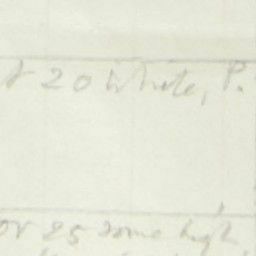 20 White, P.
or 25 some high